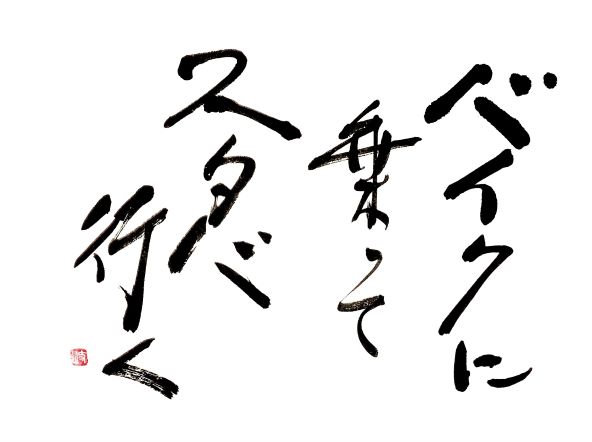 バイクに
乗って
スタバ
行く